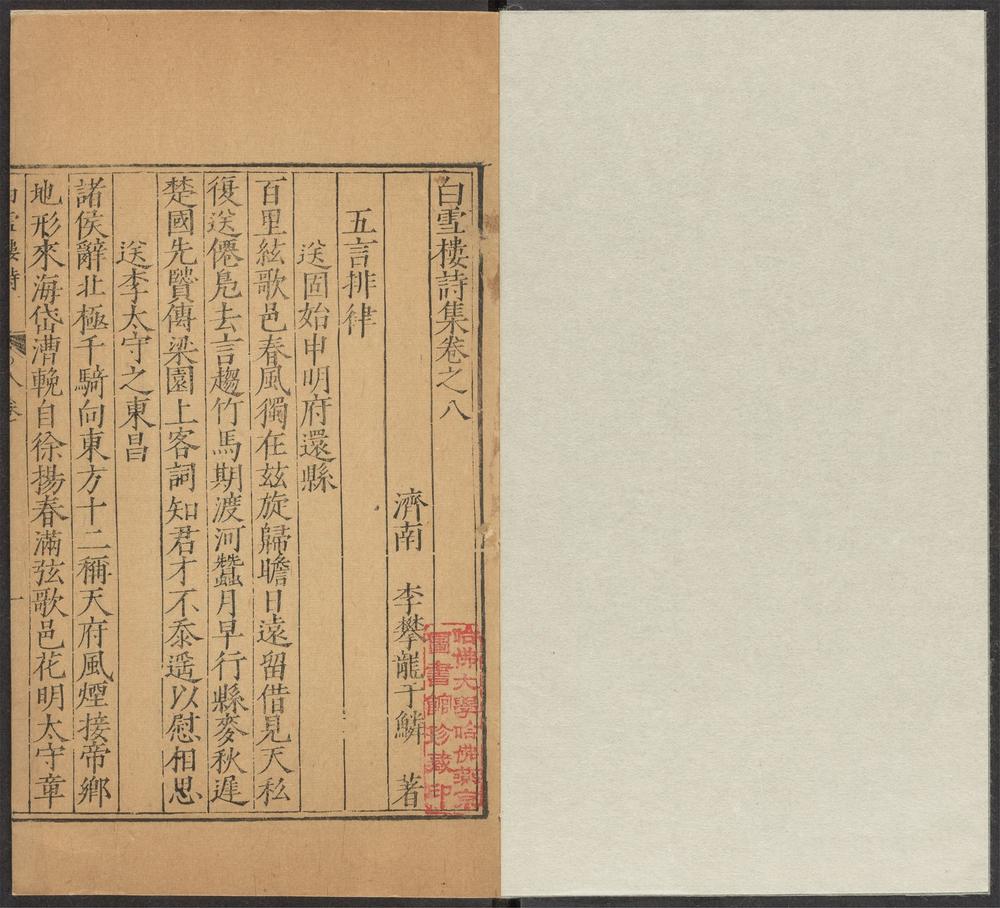 白雪樓詩集卷之八
濟南 李攀龍于鱗 著
五言排律
送固始申明府還縣
百里絃歌邑春風獨在玆旋歸瞻日遠留借見天私
復送僊凫去言趨竹馬期渡河蠶月早行縣麥秋遲
楚國先賢傳梁園上客詞知君才不忝遥以慰相思
送李太守之東昌
諸侯辭北極千騎向東方十二稱天府風煙接帝鄉
地形來海岱漕輓自徐揚春滿弦歌邑花明太守章
白雪樓詩 八卷 一
哈佛大學哈佛燕京
圖書館珍藏印